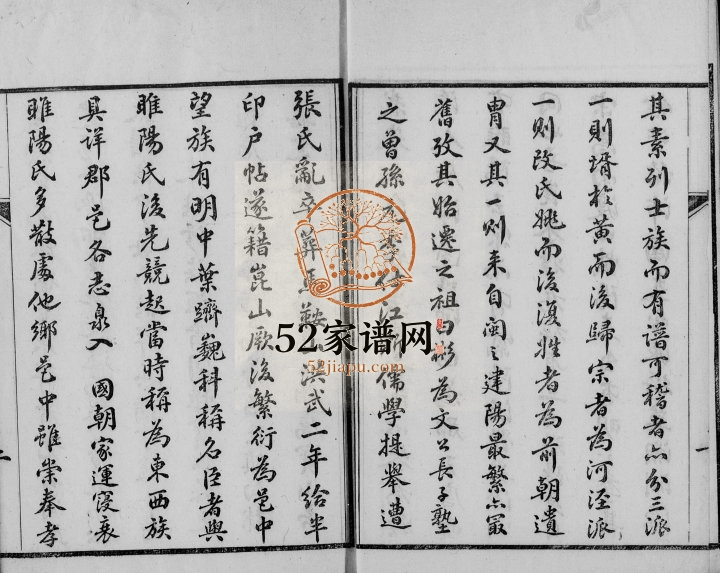 其素列士族而有譜可稽者亦分三派
一則壻於黄而後歸宗者為河涇派
一則改氏姚而後復姓者為前朝遺
冑又其一則来自閩之建陽最繁亦冣
舊攷其始遷之祖曰彬為文公長子塾
之曾孫仕江儒學提舉遭
張氏亂卒葬馬鞍洪武二年給半
印户帖遂籍崑山厥後繁衍為邑中
望族有明中葉躋巍科稱名臣者與
睢陽氏後先競起當時稱為東西族
具詳郡邑各志泉入 國朝家運寖衰
睢陽氏多散處他鄉邑中雖崇奉孝
一
二
52家谱网
52jiapu.com